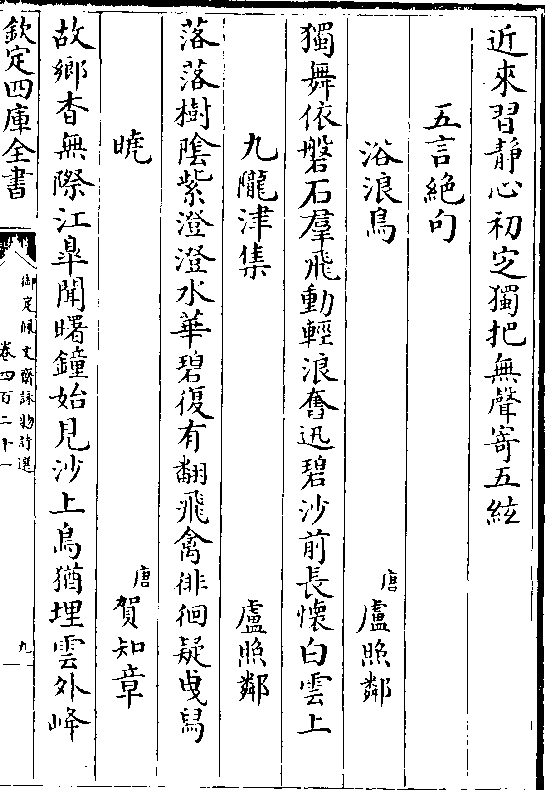 近來習静心初定獨把無聲寄五絃
五言絶句
浴浪鳥
唐盧照鄰
獨舞依磐石羣飛動輕浪奮迅碧沙前長懷白雲上
九隴津集
盧照鄰
落落樹隂紫澄澄水華碧復有翻飛禽徘徊疑曳舄
曉
唐賀知章
故鄉杳無際江臯聞曙鐘始見沙上鳥猶埋雲外峰
欽定四庫全書
御定佩文齋詠物詩選
卷四百二十一
九